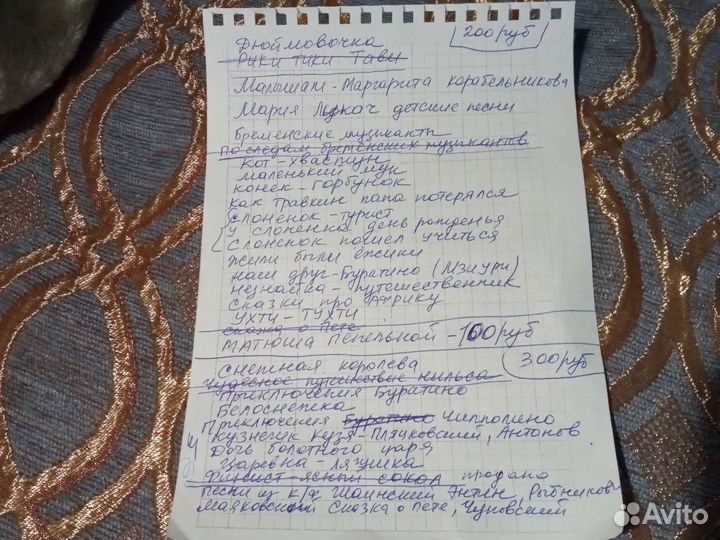 Дюймовочка
200 руб
Рики тики Тави
Малышам - Маргарита Карабельникова
Мария Лукач детские песни
Бременские музыканты
По следам бременских музыкантов
Кот-хвастун
маленький мук
конек-горбунок
как Травкин папа потерялся
Слоненок-турист
У слоненка день рожденья
Слоненок пошел учиться
жили были ёжики
наш друг-Буратино (Мзиури)
незнайка-путешественник
сказки про Африку
Ухти-Тухти
сказка о Пете
Матюша Пепельной - 100 руб
300 руб
Снежная королева
Чудесное путешествие нильса
Приключения Буратино
Белоснежка
Приключения Буратино Чипполино
Кузнечик Кузя-Пляцковский, Антонов
Дочь болотного царя
Царевна лягушка
Финист-ясный сокол продано
песни из к/ф Шаинский Рыбников
Маяковский Сказка о пете, Чуковский
Avito